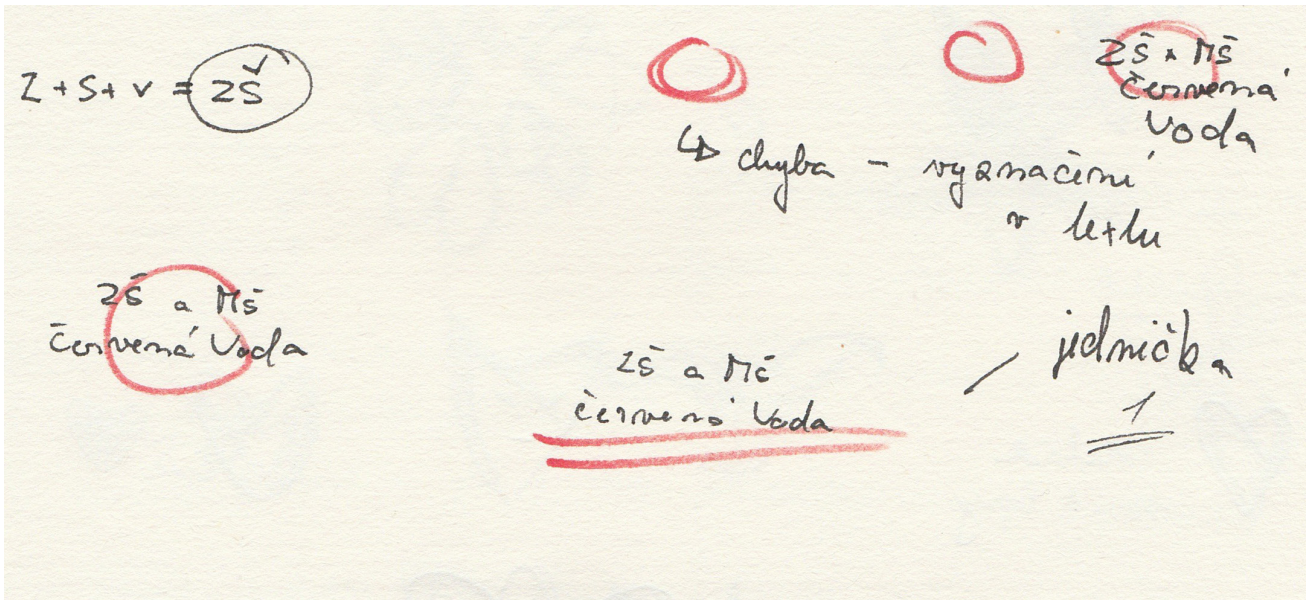 Z + S + v = ZŠ
ZŠ a MŠ
červená
Voda
chyba - vyznačení
v textu
ZŠ a MŠ
červená Voda
ZŠ a MŠ
červená Voda
jednička
1